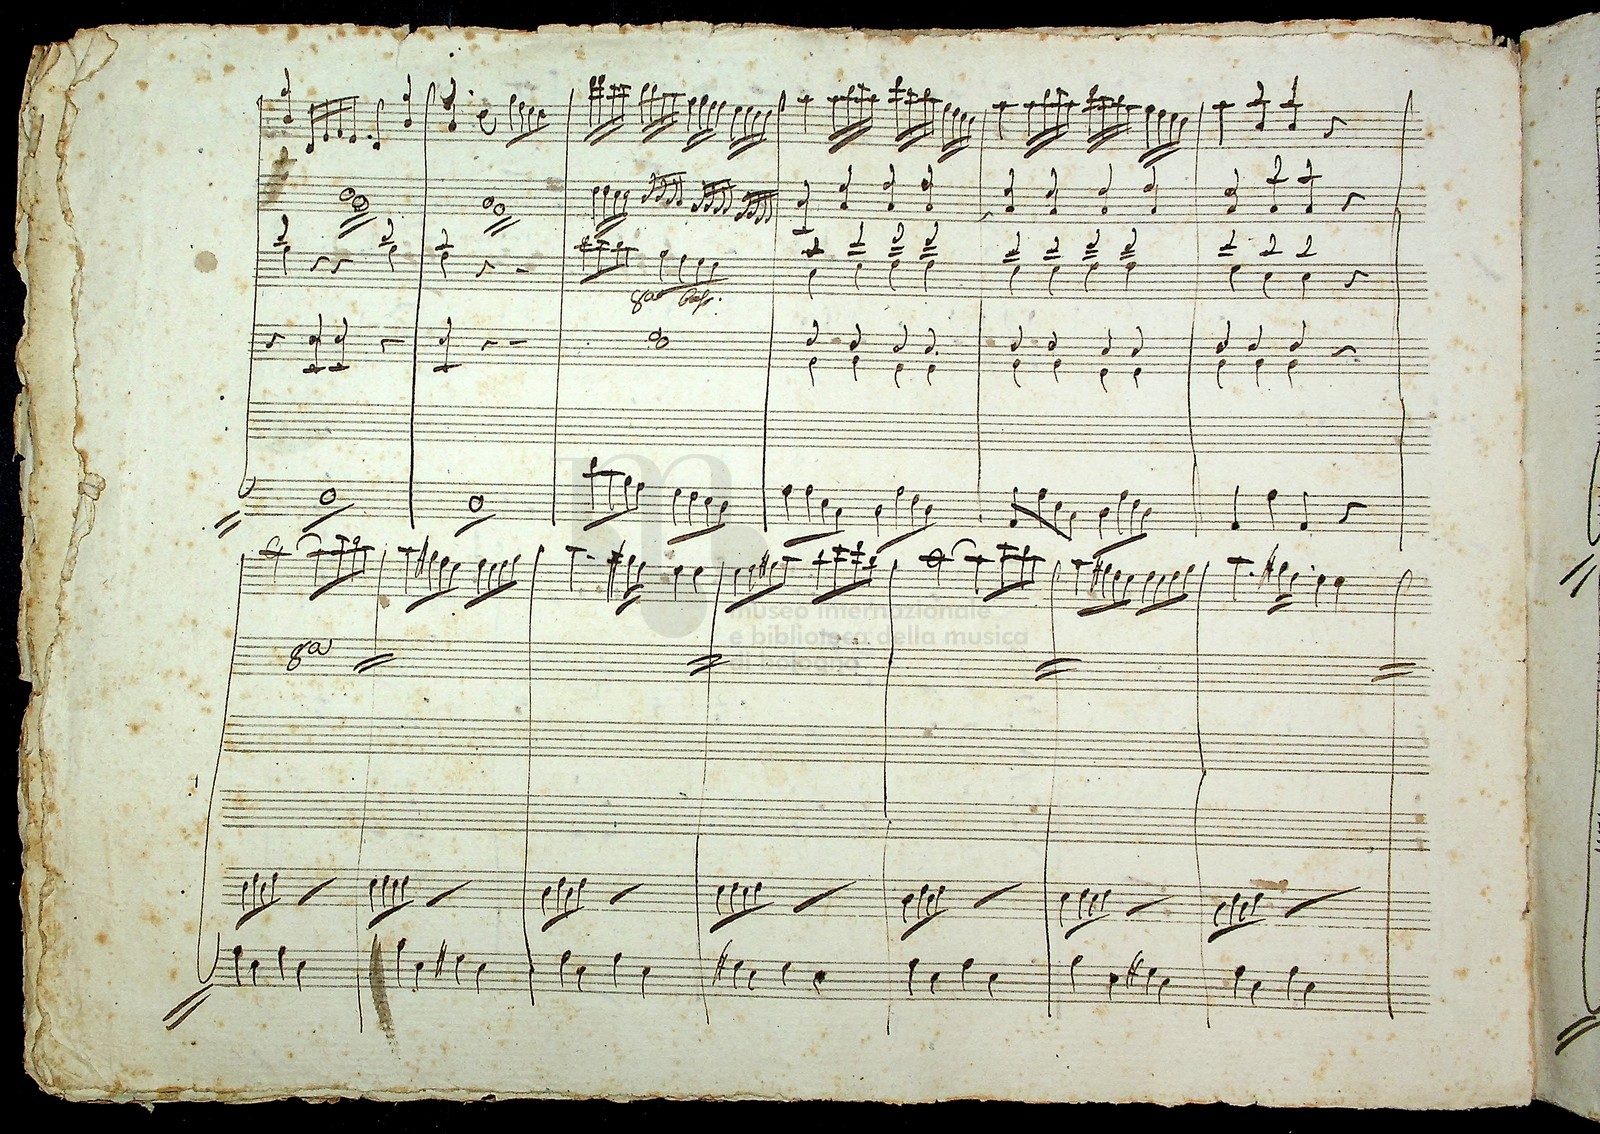 8a Bas.
m
museo internazionale
e biblioteca della musica
di bologna
8a